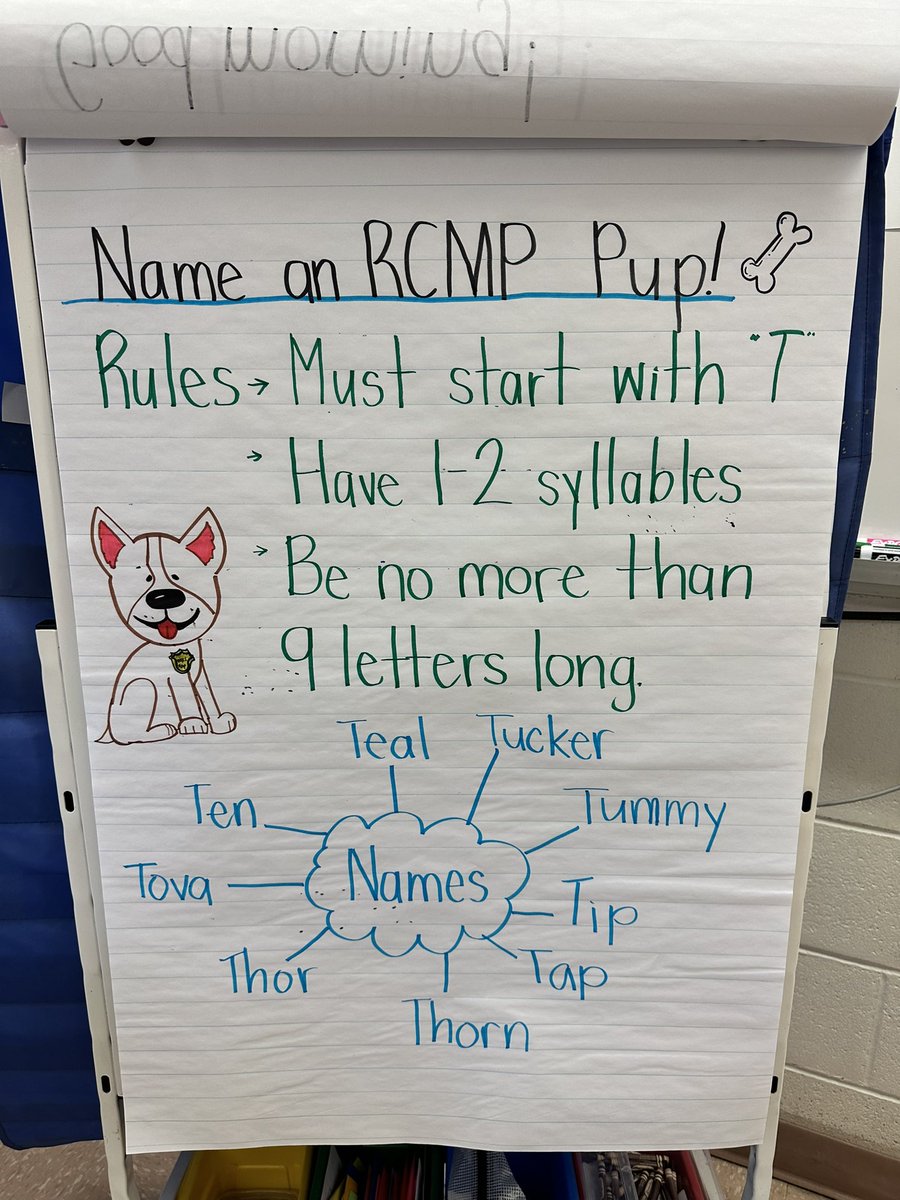 good morning!
Name an RCMP Pup!
Rules → Must start with "T"
→ Have 1-2 syllables
→ Be no more than
9 letters long.
Teal
Tucker
Ten
Tummy
Tova
Names
Tip
Thor
Tap
Thorn